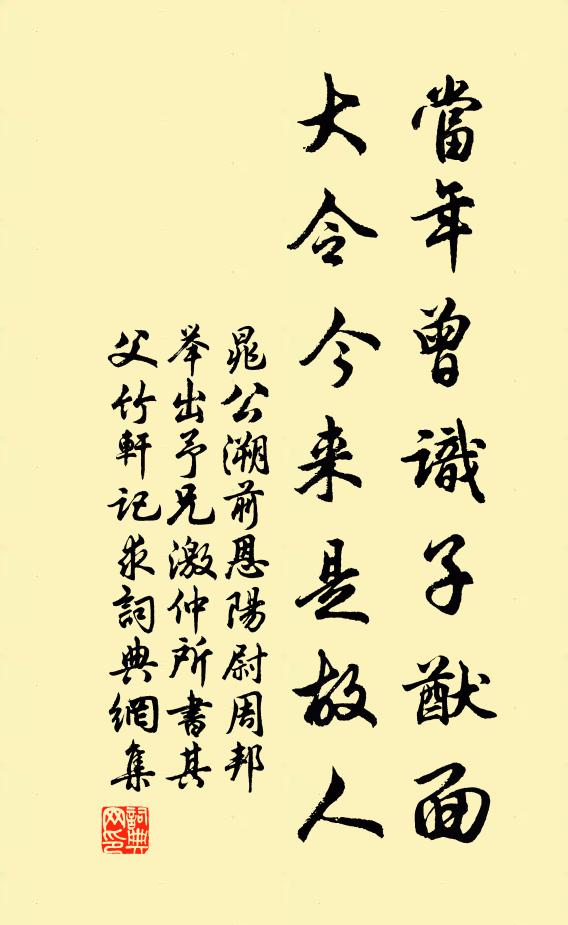 當年曾識子猷面
大令今來是故人
晁公溯前恩陽尉周邦
举出予兄激仲所書其
父竹軒記求詞典網集
詞典網印